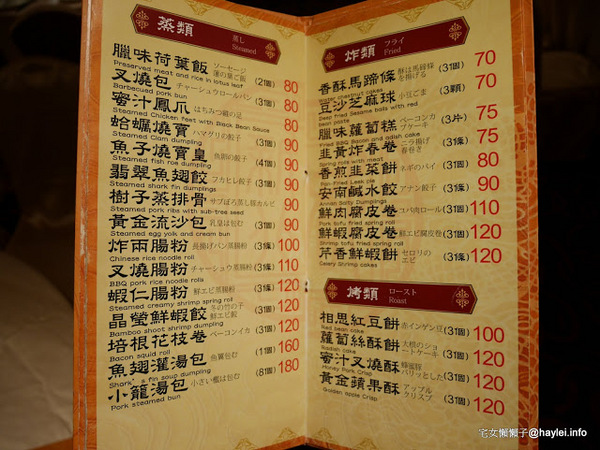 蒸類 蒸し Steamed
臘味荷葉飯 ソーセージ 蓮の葉ご飯 (2個) 80
Preserved meat and rice in lotus leaf
叉燒包 チャーシュウロールパン (3個) 80
Barbecued pork bun
蜜汁鳳爪 はちみつ鶏の足 80
Steamed Chicken feet with Black Bean Sauce
蛤蠣燒賣 ハマグリの餃子 (3個) 90
Steamed Clam dumpling
魚子燒賣皇 魚卵の餃子 (4個) 90
Steamed fish roe dumpling
翡翠魚翅餃 フカヒレ餃子 (3個) 90
Steamed shark fin dumplings
樹子蒸排骨 サブぼろ蒸し豚カルビ 90
Steamed pork ribs with sub-tree seed
黃金流沙包 乳皇は包む (3個) 90
Steamed egg yolk and cream bun
炸兩腸粉 長揚げパン蒸腸粉 (3條) 100
Chinese rice noodle roll
叉燒腸粉 チャーシュウ蒸腸粉 (3條) 110
BBQ pork rice noodle rolls
蝦仁腸粉 鮮エビ蒸腸粉 (3條) 120
Steamed creamy shrimp spring roll
晶瑩鮮蝦餃 冬の竹の子 鮮エビ餃 (3個) 120
Bamboo shoot shrimp dumpling
培根花枝卷 ベーコンイカ (3個) 120
Bacon squid roll
魚翅灌湯包 魚翼包む (1個) 160
Shark's fin soup dumpling
小籠湯包 小さい檻は包む (8個) 180
Pork steamed bun
炸類 フライ Fried
香酥馬蹄條 酥は馬蹄條を揚げる (3個) 70
Water chestnut cakes
豆沙芝麻球 小豆ごま (3顆) 70
Deep fried Sesame balls with red bean paste
臘味蘿蔔糕 ベーコンカブケーキ (3片) 75
Fried BBQ Bacon and adish cake
韭黃炸春卷 ニラ揚げ春巻き (3條) 75
Spring rolls with meat
香煎韭菜餅 ネギのパイ (3個) 80
Pan-Fried Leek pie
安南鹹水餃 アナン餃子 (3條) 90
Annan Salty Dumplings
鮮肉腐皮卷 コパ肉ロール (3個) 110
Pork tofu fried spring roll
鮮蝦腐皮卷 鮮エビ腐皮卷 (3個) 120
Shrimp tofu fried spring roll
芹香鮮蝦餅 セロリのエビ (3條) 120
Celery Shrimp cakes
烤類 ロースト Roast
相思紅豆餅 赤インゲン豆 (3個) 100
Red bean cake
蘿蔔絲酥餅 大根のショートケーキ (3個) 120
Radish cake
蜜汁叉燒酥 蜂蜜豚パリッとした (3個) 120
Honey Pork Crisp
黃金蘋果酥 アップルクリスプ (3個) 120
Golden apple Crisp
宅女懶懶子@haylei.info